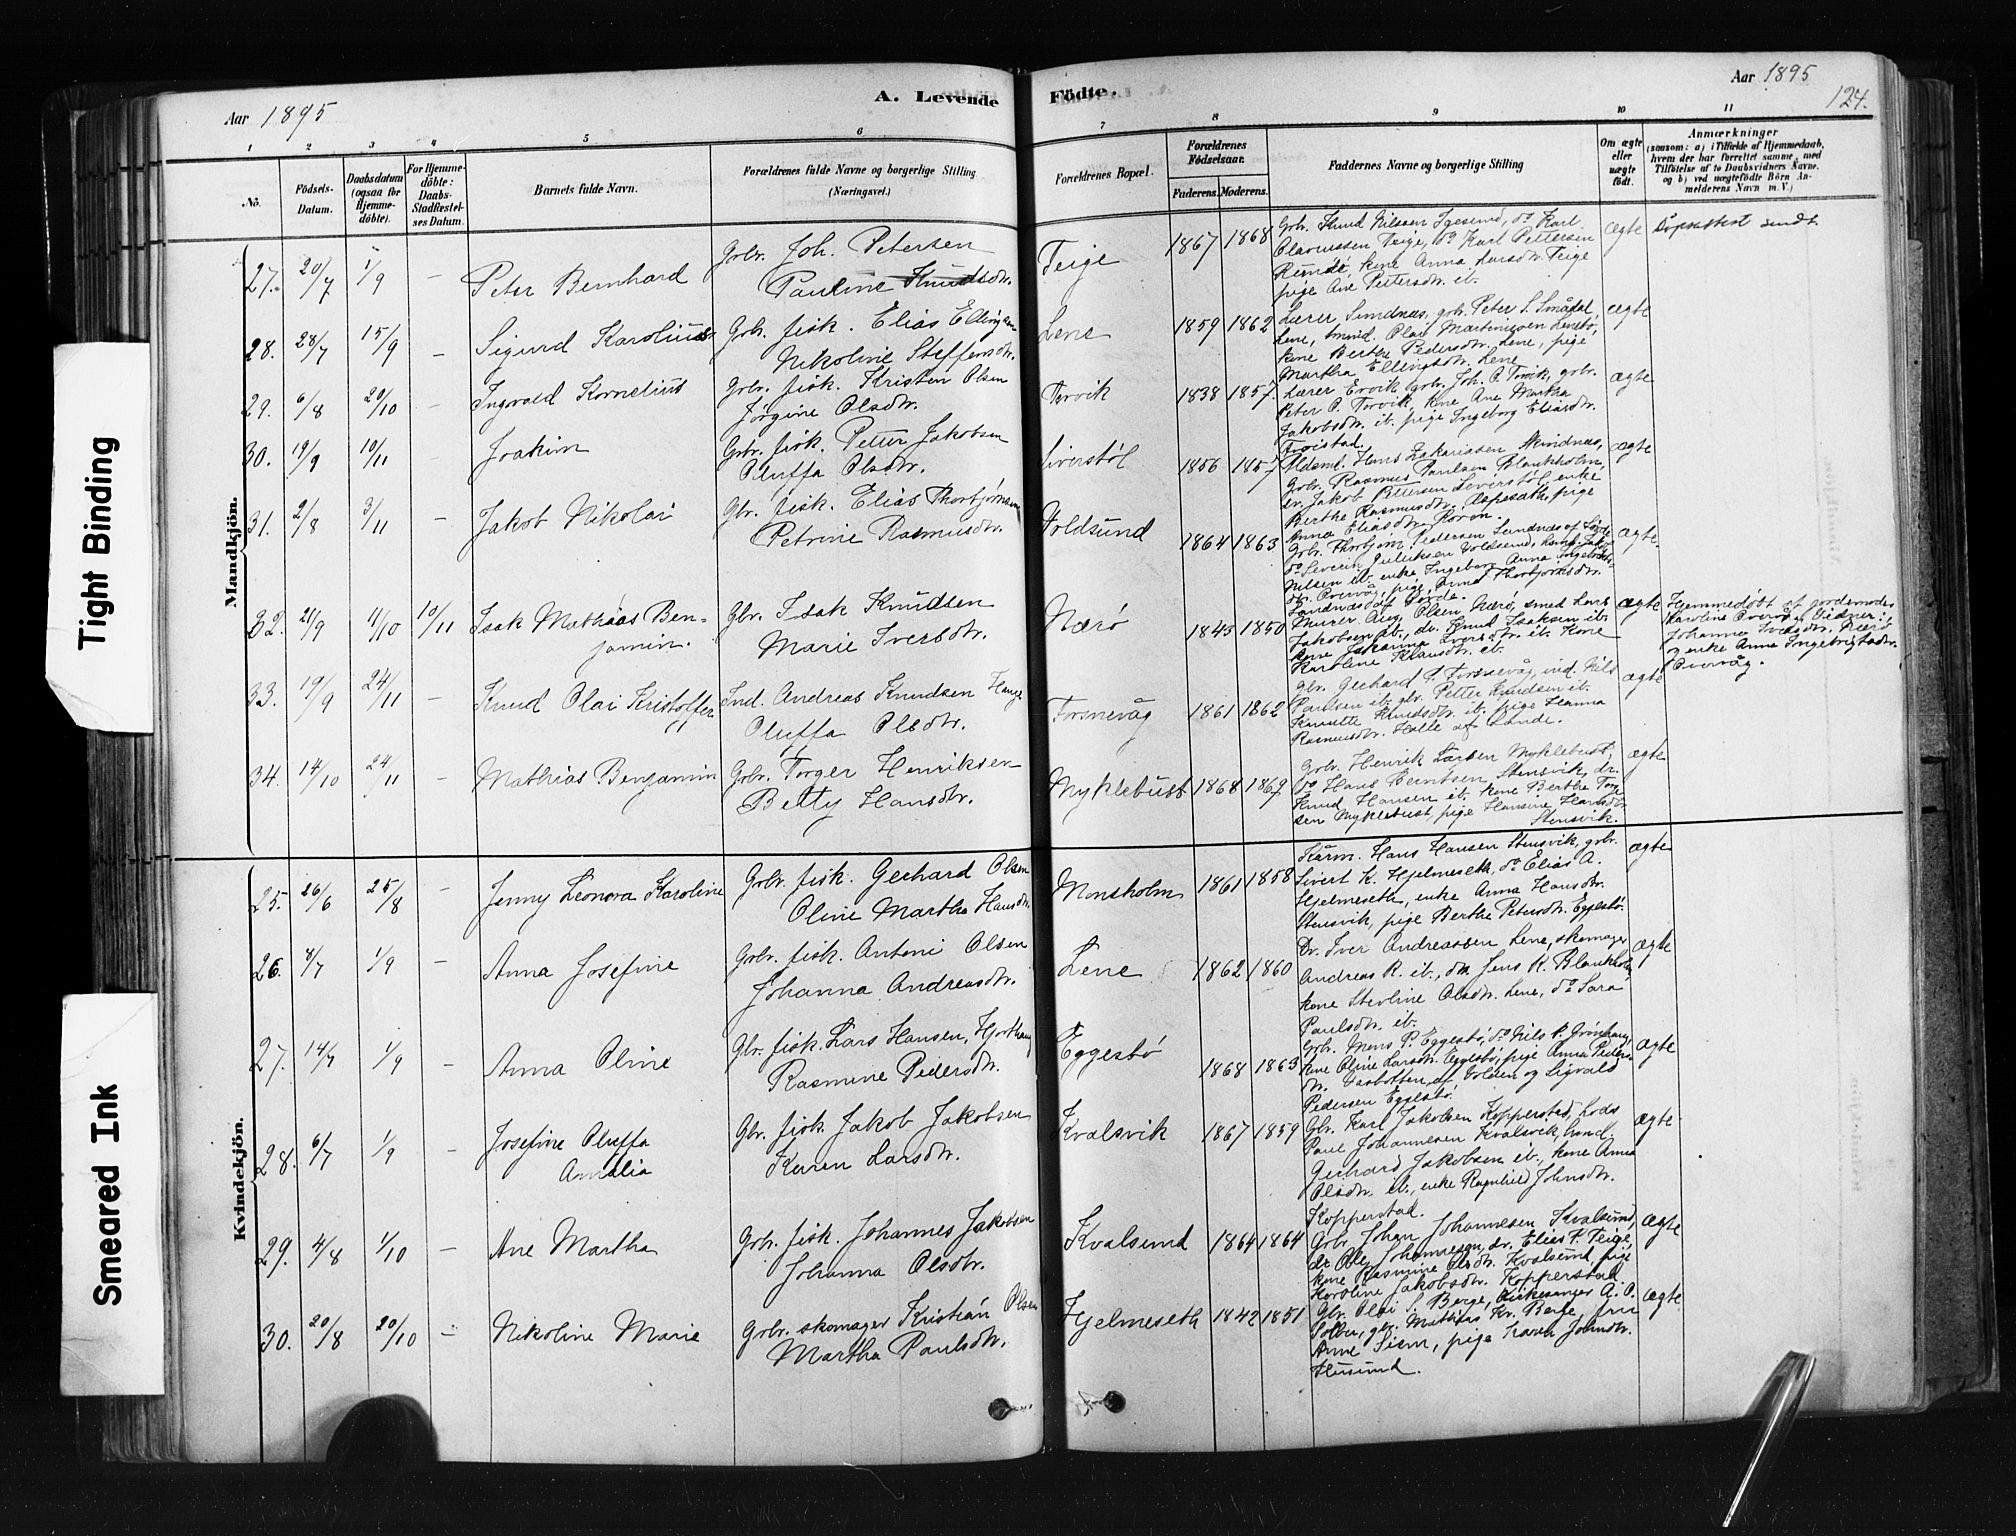 Aar 1895
A. Levende Födte.
Aar 1895
124.
1 2 3 4 5 6 7 8 9 10 11
No.
Födsels-Datum.
Daabsdatum (ogsaa for Hjemme-döbte).
For Hjemme-döbte: Daabs-Stadfæstel-ses Datum.
Barnets fulde Navn.
Forældrenes fulde Navne og borgerlige Stilling
(Næringsvei.)
Forældrenes Bopæl.
Forældrenes Födselsaar.
Faderens. Moderens.
Faddernes Navne og borgerlige Stilling
Om ægte eller uægte födt.
Anmærkninger
(saasom: a) i Tilfælde af Hjemmedaab, hvem der har forrettet samme, med Tilföielse af to Daabsvidners Navne. og b) ved uægtefödte Börn An-melderens Navn m. V.)
Mandkjön.
27. 20/7 1/9 — Peter Bernhard
Gbr. Joh. Petersen
Pauline Knudsdtr.
Teige 1867 1868
Gbr. Knud Nilssen Igesund, do Karl
Olavnessen Teige, do Karl Pettersen
Runde, kone Anna Larsdtr. Teige
pige Ane Pettersdtr. ib.
ægte
28. 28/7 15/9 — Sigurd Karolius
Gbr. fisk. Elias Ellingsen
Nikoline Steffensdtr.
Lene 1859 1862
Lærer Sundnæs, gbr. Peter S. Smådal,
Lene, Olai Martinussen Lenebø,
kone Berthe Pedersdtr. Lene, pige
Martha Ellingsdtr. Lene
ægte
29. 6/8 20/10 — Ingvald Kornelius
Gbr. fisk. Kristen Olsen
Jørgine Olsdtr.
Torvik 1838 1857
Lærer Ervik, gbr. Joh. P. Torvik, gbr.
Peter P. Torvik, kone Ane Martha
Jakobsdtr. ib. pige Ingeborg Eliasdtr.
Frøistad.
ægte
30. 19/9 10/11 Joakim
Gbr. fisk. Petter Jakobsen
Oluffa Olsdtr.
Siverstøl 1856 1857
Hans Zakariassen Skindnæs,
Gbr. Rasmus Paulsen Blankholm,
dr. Jakob Pettersen Siverstøl, enke
Berthe Rasmusdtr. Espesæth, pige
Anna Eliasdtr.
ægte
31. 2/8 3/11 — Jakob Nikolai
Gbr. fisk. Elias Thorbjørnsen
Petrine Rasmusdtr.
Voldsund 1864 1863
Gbr. Thorbjørn Pedersen Sundnæs af
do Severin Juliussen Voldsund,
Nilsen ib. enke Ingeborg Anna
Overvåg, pige, Anna Thorbjørnsdtr.
Sundnæs af
ægte.
32. 21/9 11/10 10/11 Isak Mathias Ben-
jamin.
Gbr. Isak Knudsen
Marie Iversdtr.
Nærø 1843 1850
Murer Aug. Olsen Nærø, smed Lars
Jakobsen ib., dr. Knud Isaksen ib.
kone Johanna Iversdtr. ib. Kone
Karoline Klausdtr. ib.
ægte
Hjemmedøbt af jordemoder
Karoline Overvåg. Vidner:
Johanna Iversdtr. Nærø
og enke Anna Ingebrigtsdtr.
Overvåg.
33. 19/9 24/11 — Knud Olai Kristoffer
Ind. Andreas Knudsen Hauge
Oluffa Olsdtr.
Fosnevåg 1861 1862
Gbr. Gerhard P. Fosnevåg, ind. Nils
Paulsen ib. gbr. Petter Knudsen ib.
Knudsdtr. ib. pige Hanna
Rasmusdtr. Halle af Sande.
ægte
34. 14/10 24/11 — Mathias Benjamin
Gbr. Torger Henriksen
Betty Hansdtr.
Myklebust 1868 1869
Gbr. Henrik Larsen Myklebust,
do Hans Berntsen, Stensvik, dr.
Knud Hansen ib. kone Berthe Torge
sen Myklebust, pige Hansine Hansdtr.
Stensvik.
ægte
Kvindekjön.
25. 26/6 25/8 — Jenny Leonora Karoline
Gbr. fisk. Gerhard Olsen
Oline Martha Hansdtr.
Monsholm 1861 1858
Kårm. Hans Hansen Stensvik, gbr.
Sivert K. Hjelmeseth, do Elias A.
Hjelmeseth, enke Anna Hansdtr.
Stensvik, pige Berthe Petersdtr. Eggesbø.
ægte
26. 8/7 1/9 — Anna Josefine
Gbr. fisk. Antoni Olsen
Johanna Andreasdtr.
Lene 1862 1860
Dr. Iver Andreassen Lene, skomager
Andreas R. ib., dr. Jens K. Blankholm,
kone Stevline Olsdtr. Lene, do Sara
Paulsdtr. ib.
ægte
27. 14/7 1/9 — Anna Oline
Gbr. fisk. Lars Hansen, Hjorthaug
Rasmine Pedersdtr.
Eggesbø 1868 1863
Gbr. Mons P. Eggesbø, do Nils P. Grønhaug,
kone Oline Larsdtr. Eggesbø, pige Anna Peders-
dtr. Vasbotten af Volden og Sigvald
Pedersen Eggesbø.
ægte
28. 6/7 1/9 — Josefine Oluffa
Amalia
Gbr. fisk. Jakob Jakobsen
Karen Larsdtr.
Kvalsvik 1867 1859
Gbr. Karl Jakobsen Kopperstad, Lods
Paul Johannesen Kvalsvik,
Gerhard Jakobsen ib., kone Anna
Olsdtr. ib., enke Ragnhild Johnsdtr.
Kopperstad.
ægte
29. 4/8 1/10 — Ane Martha
Gbr. fisk. Johannes Jakobsen
Johanna Olsdtr.
Kvalsund 1864 1864
Gbr. Johan Johannesen Kvalsund,
dr. Ole Johannesen, dr. Elias P. Teige,
kone Rasmine Olsdtr. Kvalsund, pige
Karoline Jakobsdtr. Kopperstad.
ægte
30. 20/8 20/10 — Nikoline Marie
Gbr. skomager Kristian Olsen
Martha Paulsdtr.
Hjelmeseth 1842 1851
Gbr. Olai S. Berge, Kirkesanger A. O.
Solber, gbr. Mathias Kr. Berge, fru
Anne Siem, pige Karen Johnsdtr.
Husund.
ægte
Tight Binding
Smeared Ink